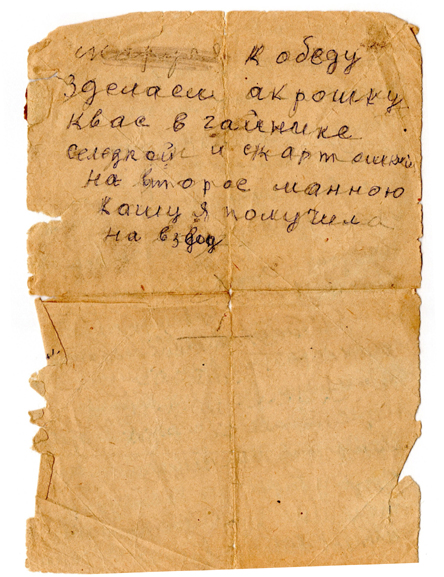 к обеду
Зделаем акрошку
квас в чайнике
селедкой и скартошкой
на второе манною
кашу я получила
на взвод